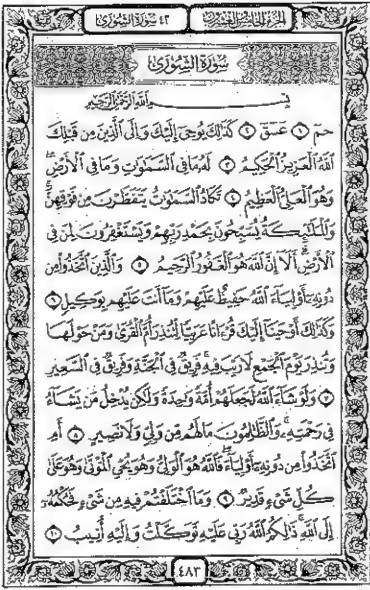 الجزء الخامس والعشرون
٤٢ سورة الشورى
سورة الشورى
بسم الله الرحمن الرحيم
حمٓ ١ عٓسٓقٓ ٢ كَذَٰلِكَ يُوحِىٓ إِلَيْكَ وَإِلَى ٱلَّذِينَ مِن قَبْلِكَ
ٱللَّهُ ٱلْعَزِيزُ ٱلْحَكِيمُ ٣ لَهُۥ مَا فِى ٱلسَّمَٰوَٰتِ وَمَا فِى ٱلْأَرْضِ
وَهُوَ ٱلْعَلِىُّ ٱلْعَظِيمُ ٤ تَكَادُ ٱلسَّمَٰوَٰتُ يَتَفَطَّرْنَ مِن فَوْقِهِنَّ
وَٱلْمَلَٰٓئِكَةُ يُسَبِّحُونَ بِحَمْدِ رَبِّهِمْ وَيَسْتَغْفِرُونَ لِمَن فِى
ٱلْأَرْضِ أَلَآ إِنَّ ٱللَّهَ هُوَ ٱلْغَفُورُ ٱلرَّحِيمُ ٥ وَٱلَّذِينَ ٱتَّخَذُوا۟ مِن
دُونِهِۦٓ أَوْلِيَآءَ ٱللَّهُ حَفِيظٌ عَلَيْهِمْ وَمَآ أَنتَ عَلَيْهِم بِوَكِيلٍ ٦
وَكَذَٰلِكَ أَوْحَيْنَآ إِلَيْكَ قُرْءَانًا عَرَبِيًّا لِّتُنذِرَ أُمَّ ٱلْقُرَىٰ وَمَنْ حَوْلَهَا
وَتُنذِرَ يَوْمَ ٱلْجَمْعِ لَا رَيْبَ فِيهِ فَرِيقٌ فِى ٱلْجَنَّةِ وَفَرِيقٌ فِى ٱلسَّعِيرِ
٧ وَلَوْ شَآءَ ٱللَّهُ لَجَعَلَهُمْ أُمَّةً وَٰحِدَةً وَلَٰكِن يُدْخِلُ مَن يَشَآءُ
فِى رَحْمَتِهِۦ وَٱلظَّٰلِمُونَ مَا لَهُم مِّن وَلِىٍّ وَلَا نَصِيرٍ ٨ أَمِ
ٱتَّخَذُوا۟ مِن دُونِهِۦٓ أَوْلِيَآءَ فَٱللَّهُ هُوَ ٱلْوَلِىُّ وَهُوَ يُحْىِ ٱلْمَوْتَىٰ وَهُوَ عَلَىٰ
كُلِّ شَىْءٍ قَدِيرٌ ٩ وَمَا ٱخْتَلَفْتُمْ فِيهِ مِن شَىْءٍ فَحُكْمُهُۥٓ
إِلَى ٱللَّهِ ذَٰلِكُمُ ٱللَّهُ رَبِّى عَلَيْهِ تَوَكَّلْتُ وَإِلَيْهِ أُنِيبُ ١٠
٤٨٣